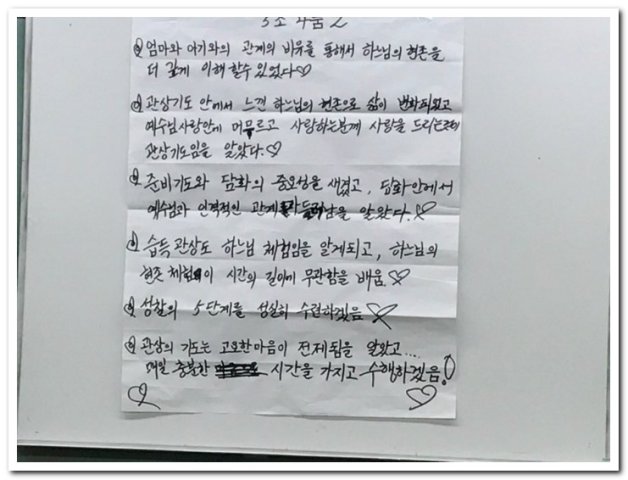 3조 나눔 2
엄마와 아기와의 관계의 비유를 통해서 하느님의 현존을
더 깊게 이해 할 수 있었다♡
관상기도 안에서 느낀 하느님의 현존으로 삶이 변화되었고
예수님 사랑안에 머무르고 사랑하는분께 사랑을 드리는것이
관상기도임을 알았다.♡
준비기도와 담화의 중요성을 새겼고, 담화안에서
예수님과 인격적인 관계가 드러남을 알았다.♡
습득 관상도 하느님 체험임을 알게되고, 하느님의
현존 체험이 시간의 길이에 무관함을 배움♡
성찰의 5단계를 성실히 수련하겠음♡
관상의 기도는 고요한 마음이 전제됨을 알았고....
매일 충분한 시간을 가지고 수행하겠음!